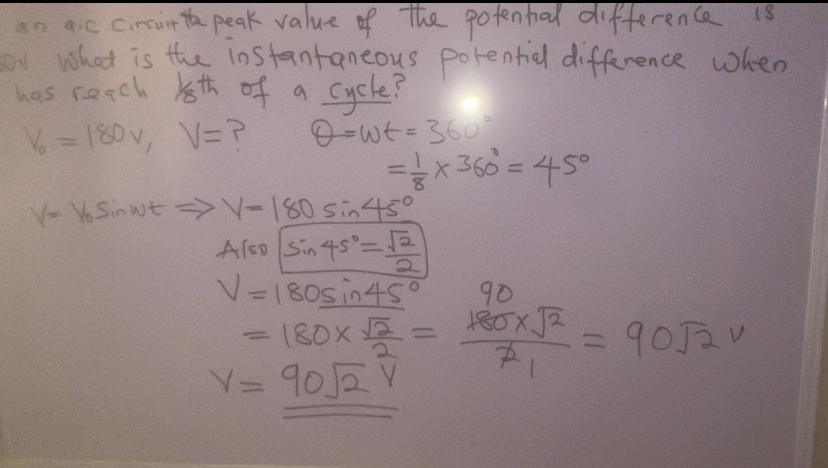 an a.c circuit the peak value of the potential difference is
What is the instantaneous potential difference when
has reach 1/8th of a cycle?
V₀ = 180v, V=? θ=wt = 360°
= 1/8 × 360° = 45°
V= V₀ Sinwt ⇒ V= 180 sin45°
Also Sin 45° = √2/2
V = 180sin45°
= 180 × √2/2 = 90 180×√2 / 2 1 = 90√2 V
V= 90√2 V